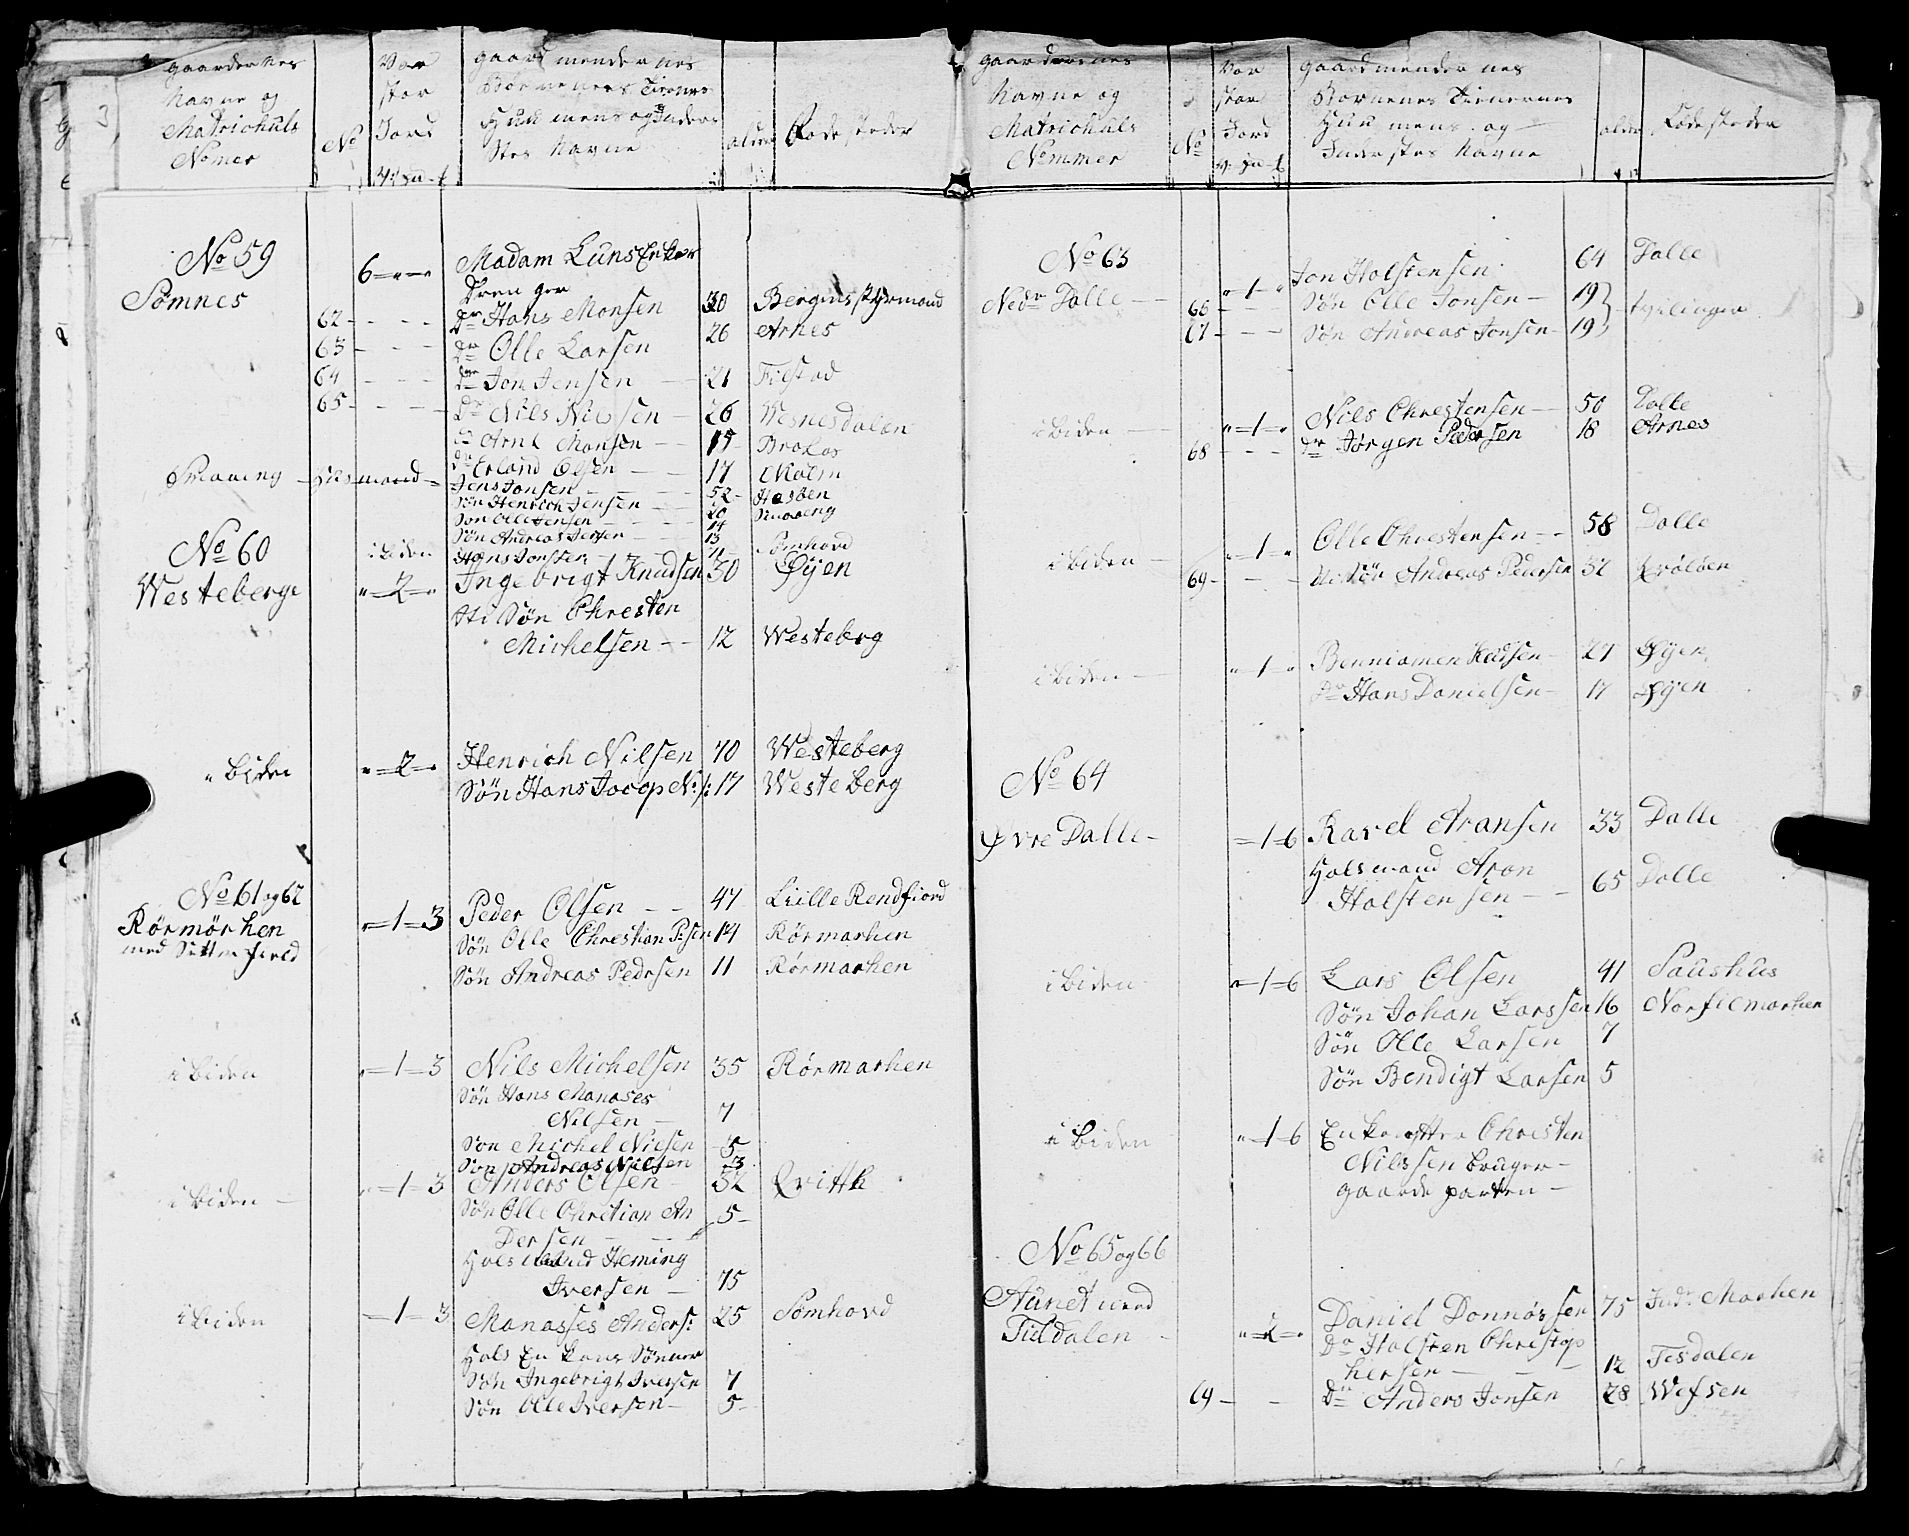 gaardernes
Navne og
Matrichuls
Nomer
No
Vor
stor
Jord
gaard mendernes
Børnenes Tienernes
Huu mens og Inders
Stes Navne
alder
Føde steder
No 59
Sømnes
6
Madam Luns Enker
Dren ger
62 - - - Dr Hans Monsen 30 Bergens styrmand
63 - - - Dr Olle Larsen 26 Arnes
64 - - - Dr Jon Jensen 21 Filstad
65 - - - Dr Nils Nilsen - 26 Vesnesdalen
Dr Arnt Monsen - - 15 Brokos
Dr Erland Olsen - - - 17 Malm
husmand Jens Jonsen 52 -
Søn Henrich Jensen 20
Søn Olle Jensen 14
Søn Andreas Jensen 13
Hans Jonsen 11 Sømhovd
No 60
Westeberge
i biden
"=2=" Ingebrigt Knudsen 30 Øyen
Sti Søn Chresten
Michelsen - - 12 Westebrg
i biden "=2=" Henrich Nilsen 40 Westeberg
Søn Hans Jacop N:s: 17 Westeberg
No 61 og 62
Rørmørken
med Sætterfield
"=1=3 Peder Olsen - - 47 Liille Rendfiord
Søn Olle Chrestian P:sen 14 Rørmarken
Søn Andreas Pedrsen 11 Rørmarken
i biden "=1=3 Nils Michelsen 35 Rørmarken
Søn Hans Manases
Nilsen - 7
Søn Michel Nilsen 5
Søn Andreas Nilsen 3
i biden - "=1=3 Anders Olsen - 32 Qvittk
Søn Olle Chretian An
Dersen - - - 5 -
Hols mand Heming
Iversen - 75
i biden =1=3 Manasses Anders: 25 Sømhovd
Hols En kens Sønner
Søn Ingebrigt Iversen 7
Søn Olle Iversen - 5 -
gaardernes
Navne og
Matrichuls
Nommer
No
Vor
stor
Jord
gaardmendernes
Børnenes Tienernes
Huu mens og
Inderstes Navne
alder
Fødesteder
No 63
Nedr Dalle - -
"=1=" Jon Holstensen 64 Dalle
66 - - - Søn Olle Jonsen - 19 } tvilinger
67 - - - Søn Andreas Jonsen - 19
i biden - - "=1=" Nils Chrestensen - 50 Dalle
68 - - - Dr Jørgen Pedersen 18 Arnes
i biden - "=1=" Olle Chrestensen - - 58 Dalle
69 - - - Sti Søn Andreas Pedersen 32
i biden - "=1=" Benniamen 27 Øyen
Dr Hans Danielsen - 17 Øyen
No 64
Øvre Dalle -
=1=6 Ravel Aransen 33 Dalle
Holsmand Aron
Holstensen - - 65 Dalle
i biden - "=1=6 Lars Olsen 41 Saushus
Søn Johan Larssen 16 Norfilmarken
Søn Olle Larsen 7
Søn Bendigt Larsen 5
i biden "=1=6 Enke efter Chresten
Nilssen bruger -
gaarde parten -
No 65 og 66
Aunet med
Tildalen -
"=2=" Daniel Dønnøssen 75 Indr Marken
Dr Holsten Chrestop
hersen - - - 12 Tesdalen
69 - - Dr Anders Jonsen 28 Wefsen